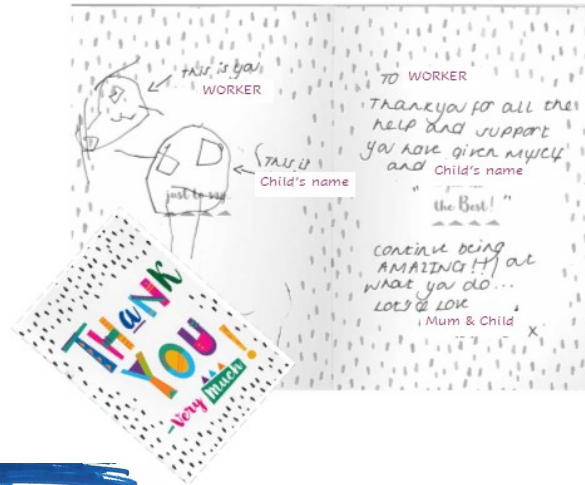 this is you
WORKER
THIS IS
Child's name
just to say
TO WORKER
Thankyou for all the
help and support
you have given myself
and Child's name
"
the Best! "
continue being
AMAZING!!! at
what you do...
Lots of Love
Mum & Child
x
THANK
YOU!!
-very much